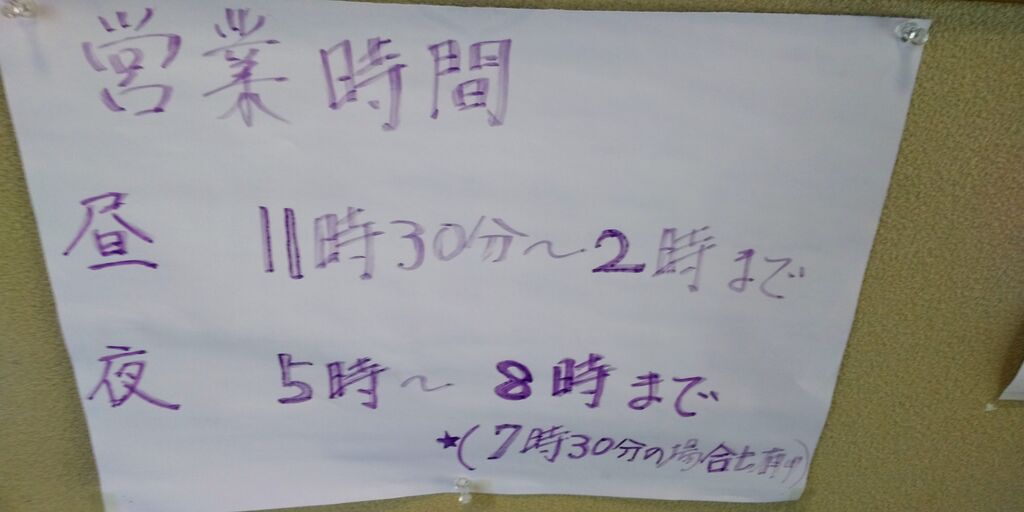 営業時間
昼 11時30分～2時まで
夜 5時～8時まで
★(7時30分の場合も有り)